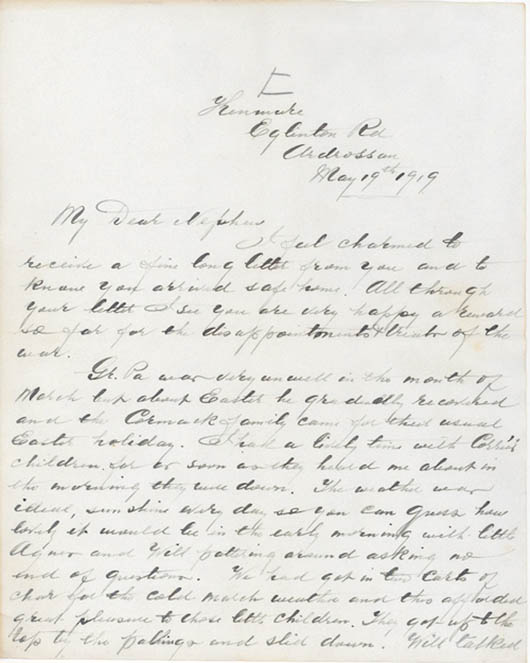 Kenmure
Eglinton Rd
Ardrossan
May 19th 1919
My Dear Nephew
I feel charmed to
receive a fine long letter from you and to
know you arrived safe home. All through
your letter I see you are very happy a reward
so far for the disappointments & of the
war.
Gr. Pa was very unwell in the month of
March but about Easter he gradually recovered
and the Cormack family came for their usual
Easter holiday. I had a lively time with
children for as soon as they heard me about in
the morning they were down. The weather was
ideal, sunshine every day so you can guess how
lovely it would be in the early morning with little
Agnes and Will pottering around asking no
end of questions. We had got in two carts of
char for the cold March weather and this afforded
great pleasure to those little children. They got up to the
top by the palings and slid down. Will talked